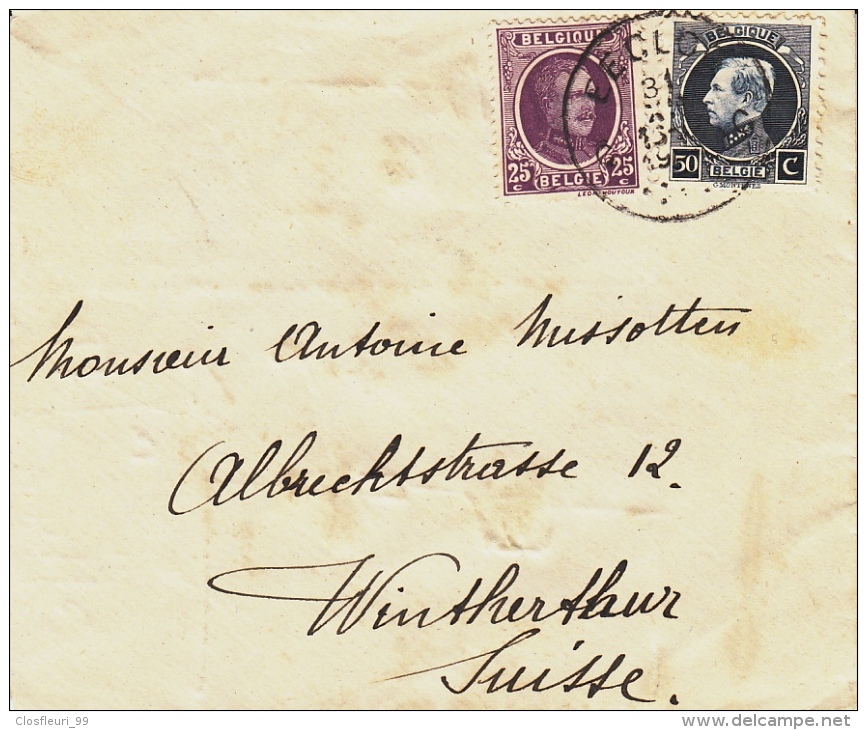 BELGIQUE BELGIQUE
EECLO
31
25 c BELGIE 25 c 50 BELGIE C
G.MONTENEZ
Monsieur Antoine Missotten
Albrechtstrasse 12.
Wintherthur
Suisse.
Closfleuri_99
delcampe.net